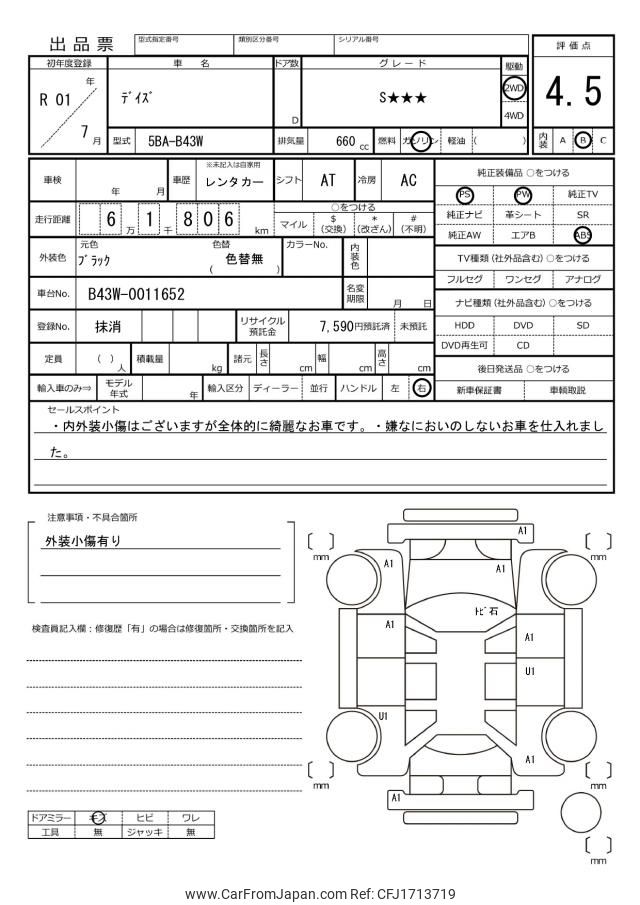 出品票
型式指定番号 類別区分番号 シリアル番号
評価点
初年度登録 車名 ドア数 グレード 駆動
R 01 年 7 月
デイズ
D
S★★★
2WD
4WD
4.5
型式 5BA-B43W 排気量 660 cc 燃料 ガソリン 軽油 ( )
内装 A B C
車検 年 月 車歴 ※未記入は自家用 レンタカー シフト AT 冷房 AC
純正装備品 ○をつける
PS PW 純正TV
走行距離 6 1 万 千 8 0 6 km
○をつける
マイル $(交換) *(改ざん) #(不明)
純正ナビ 革シート SR
純正AW エアB ABS
外装色 元色 ブラック 色替 ( 色替無 ) カラーNo. 内装色
TV種類 (社外品含む) ○をつける
フルセグ ワンセグ アナログ
車台No. B43W-0011652 名変期限 月 日
ナビ種類 (社外品含む) ○をつける
登録No. 抹消 リサイクル預託金 7,590円預託済 未預託
HDD DVD SD
DVD再生可 CD
定員 ( ) 人 積載量 kg 諸元 長さ cm 幅 cm 高さ cm
後日発送品 ○をつける
輸入車のみ⇒ モデル年式 年 輸入区分 ディーラー 並行 ハンドル 左 右
新車保証書 車輌取説
セールスポイント
・内外装小傷はございますが全体的に綺麗なお車です。・嫌なにおいのしないお車を仕入れまし
た。
注意事項・不具合箇所
外装小傷有り
検査員記入欄：修復歴「有」の場合は修復箇所・交換箇所を記入
A1
mm
mm
A1
A1
トビ石
A1
A1
U1
U1
A1
mm
mm
A1
mm
ドアミラー キズ ヒビ ワレ
工具 無 ジャッキ 無
www.CarFromJapan.com Ref: CFJ1713719